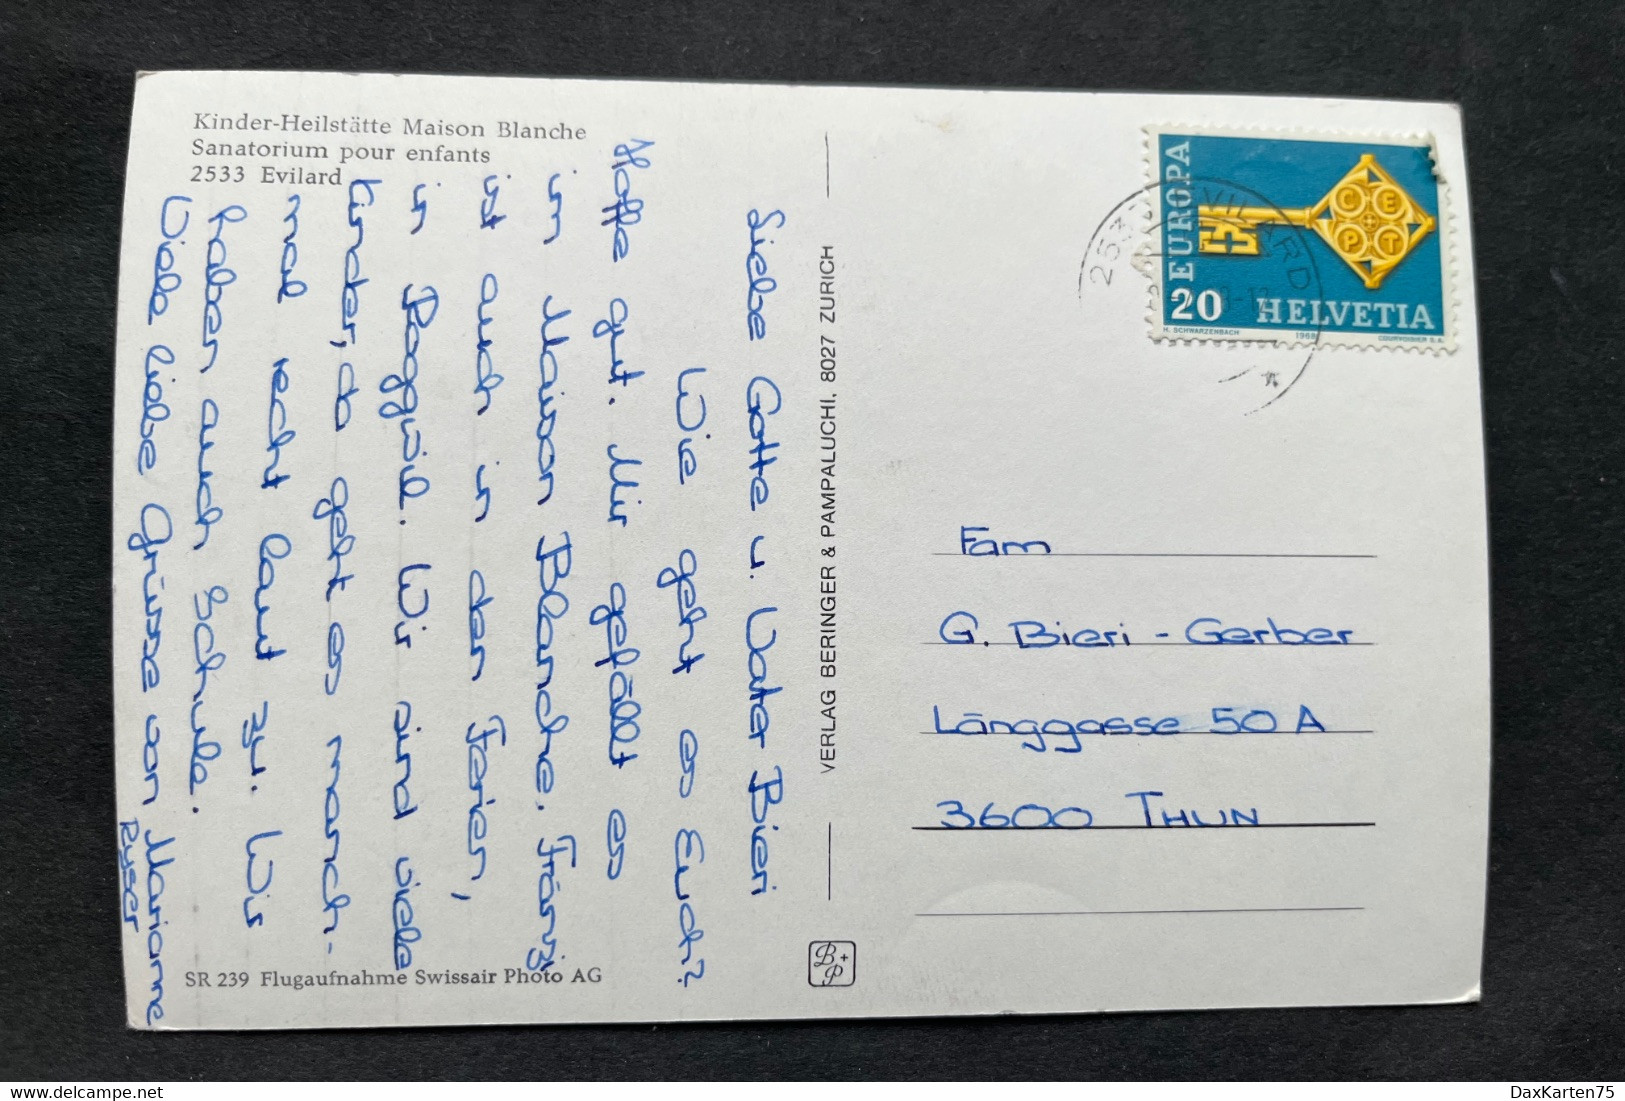 Kinder-Heilstätte Maison Blanche
Sanatorium pour enfants
2533 Evilard
Liebe Gotte u. Vater Bieri
Wie geht es Euch?
Hoffe gut. Mir gefällt es
im Maison Blanche. Fränzi
ist auch in den Ferien,
in
Wir sind viele
Kinder, da geht es manch-
mal recht laut zu. Wir
haben auch Schule.
Viele liebe Grüsse von Marianne
Ryser
SR 239 Flugaufnahme Swissair Photo AG
VERLAG BERINGER & PAMPALUCHI, 8027 ZURICH
B+P
EUROPA
CEPT
20 HELVETIA
H. SCHWARZENBACH 1968 COURVOISIER S.A.
2533 EVILARD
Fam
G. Bieri - Gerber
Länggasse 50 A
3600 THUN
delcampe.net
DaxKarten75